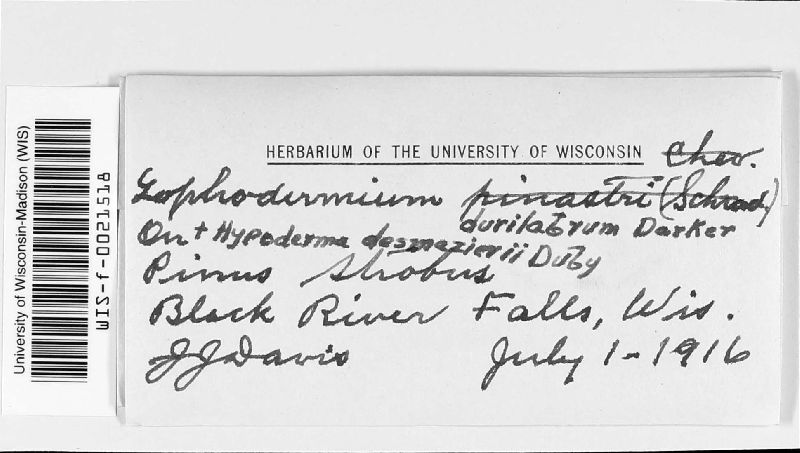 University of Wisconsin-Madison (WIS)
WIS-f-0021518
HERBARIUM OF THE UNIVERSITY OF WISCONSIN
Chev.
Lophodermium pinastri (Schrad.)
durilabrum Darker
On + Hypoderma desmazierii Duby
Pinus strobus
Black River Falls, Wis.
JJDavis July 1-1916